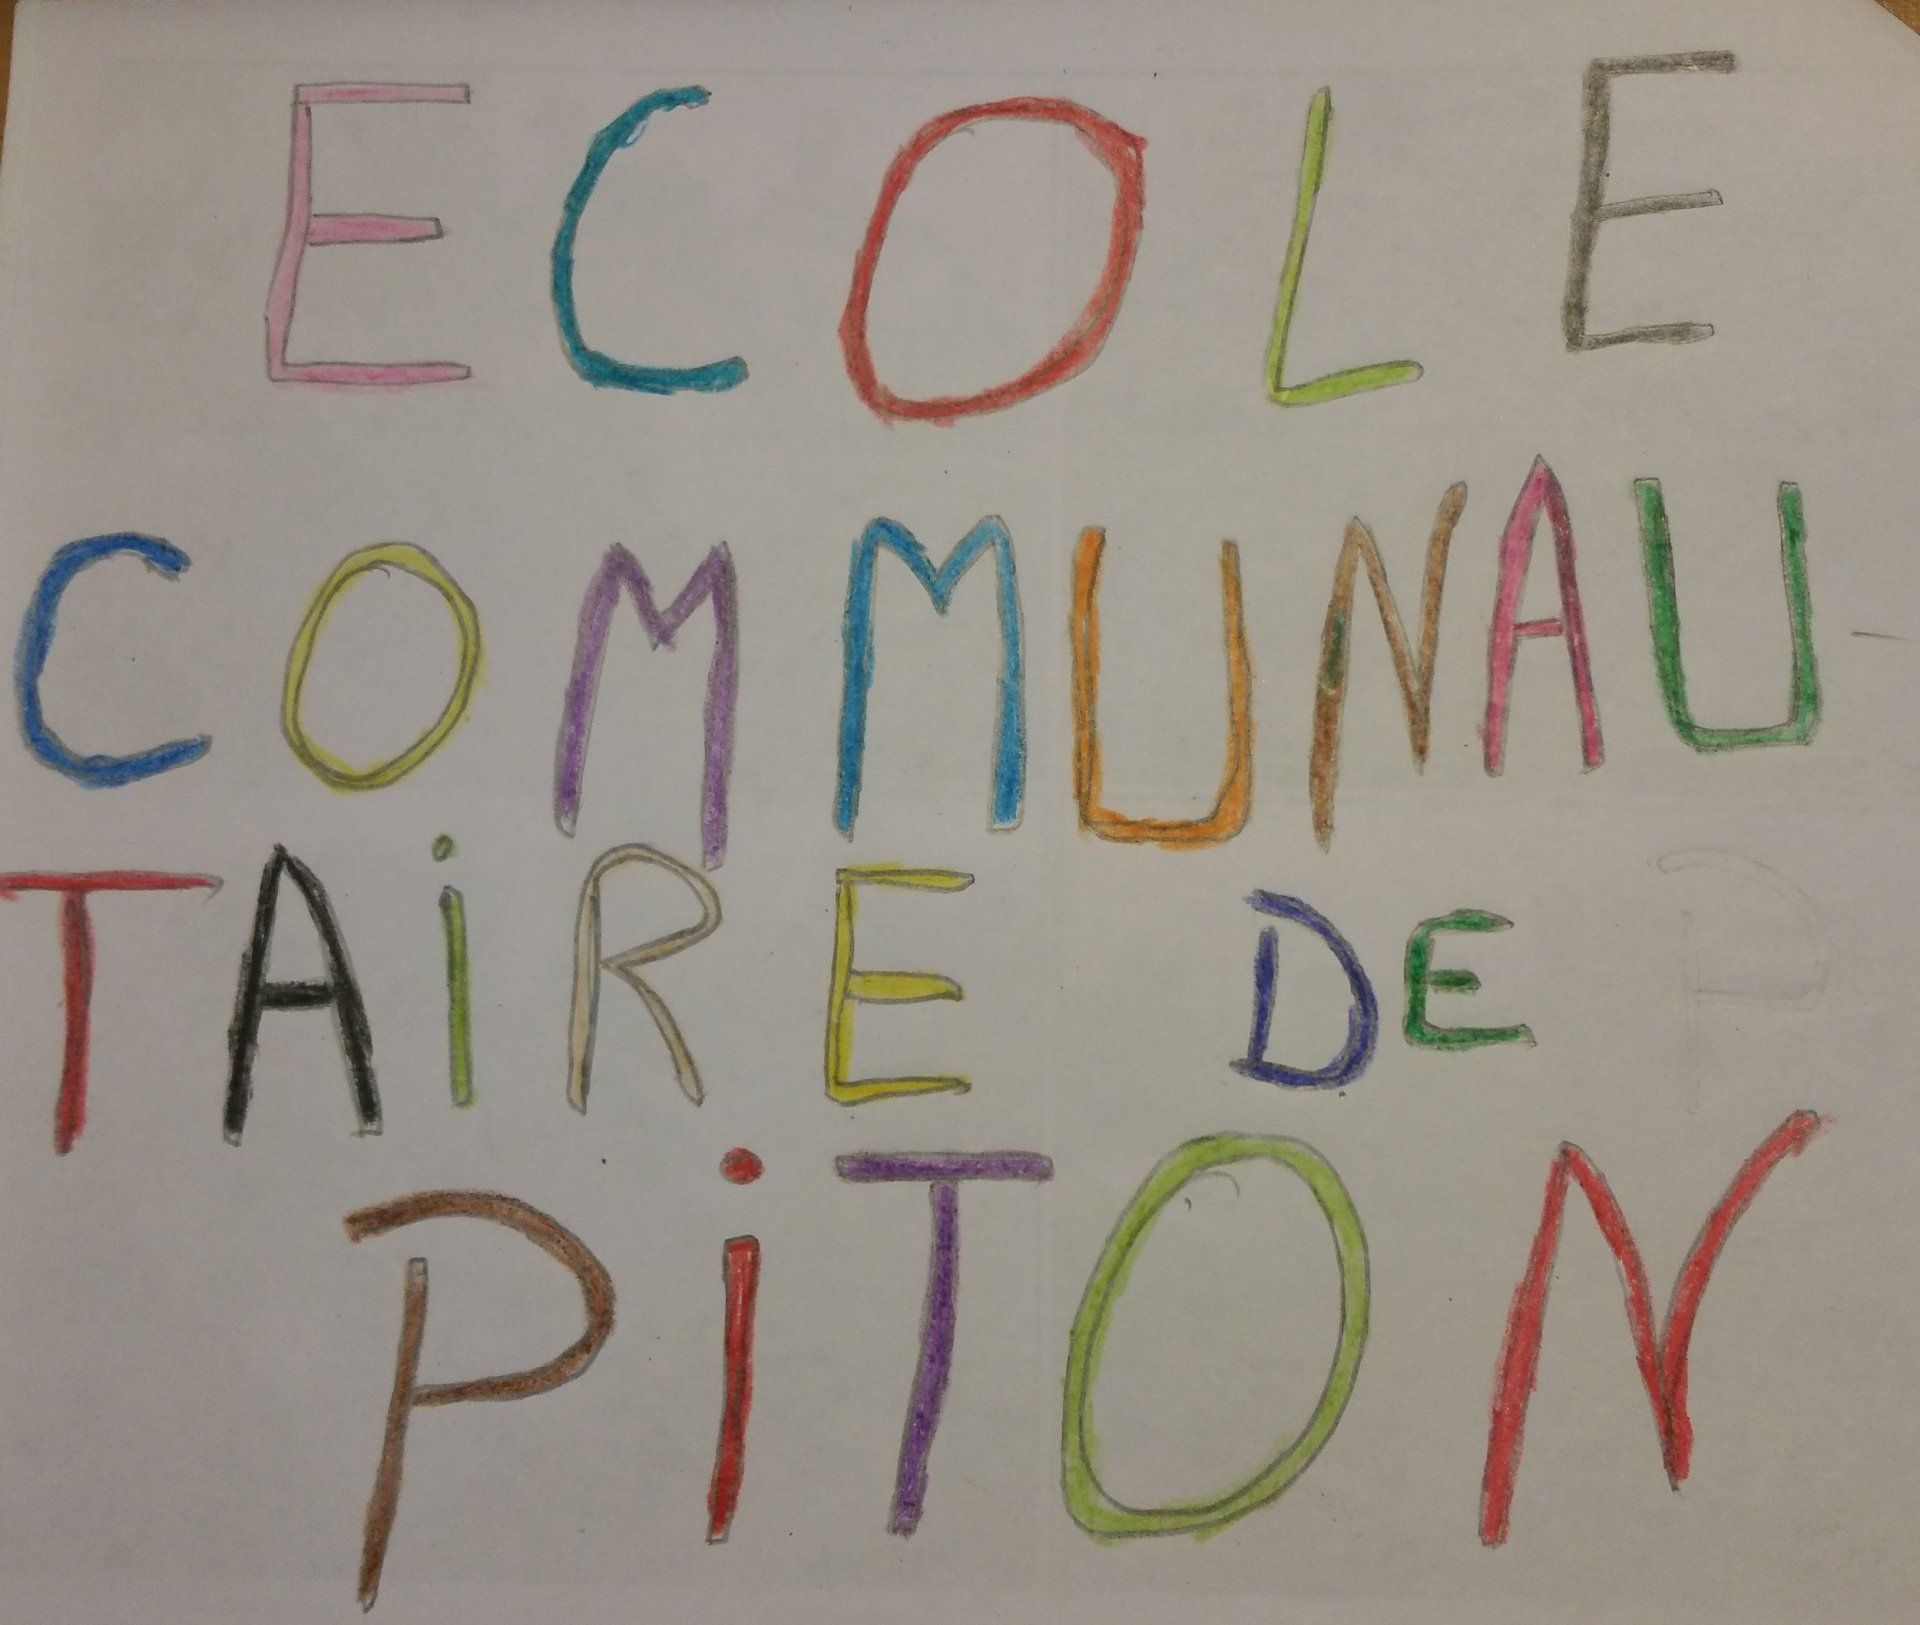 ECOLE
COMMUNAU-
TAiRE DE
PiTON